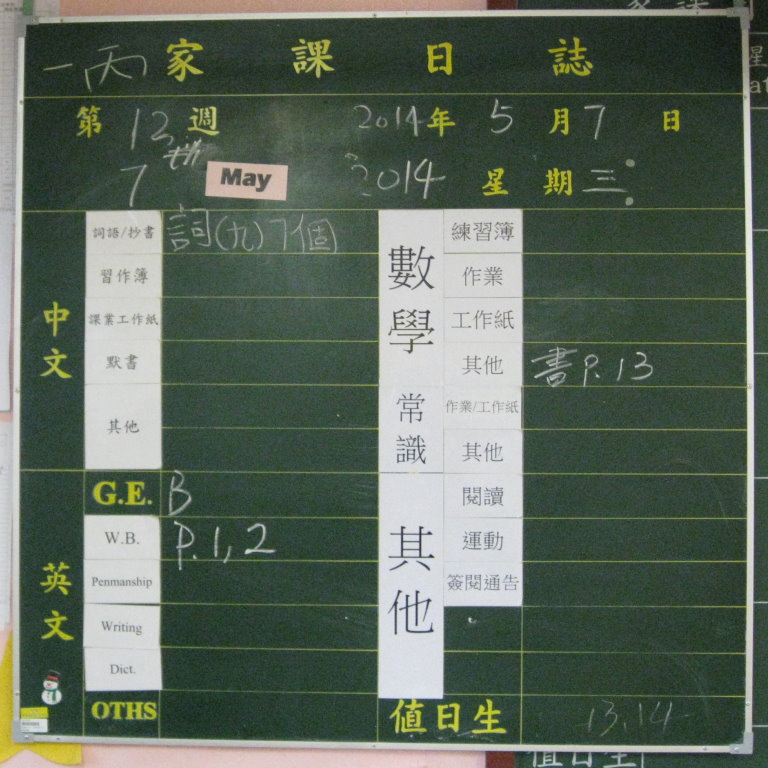 一丙 家課日誌
第 12 週 2014年 5月7日
7th May 2014 星期三
中文
詞語/抄書 詞(九)7個
習作簿
課業工作紙
默書
其他
英文
G.E. B
W.B. P.1,2
Penmanship
Writing
Dict.
OTHS
數學
練習簿
作業
工作紙
其他 書P.13
常識
作業/工作紙
其他
其他
閱讀
運動
簽閱通告
值日生 13,14
值日生